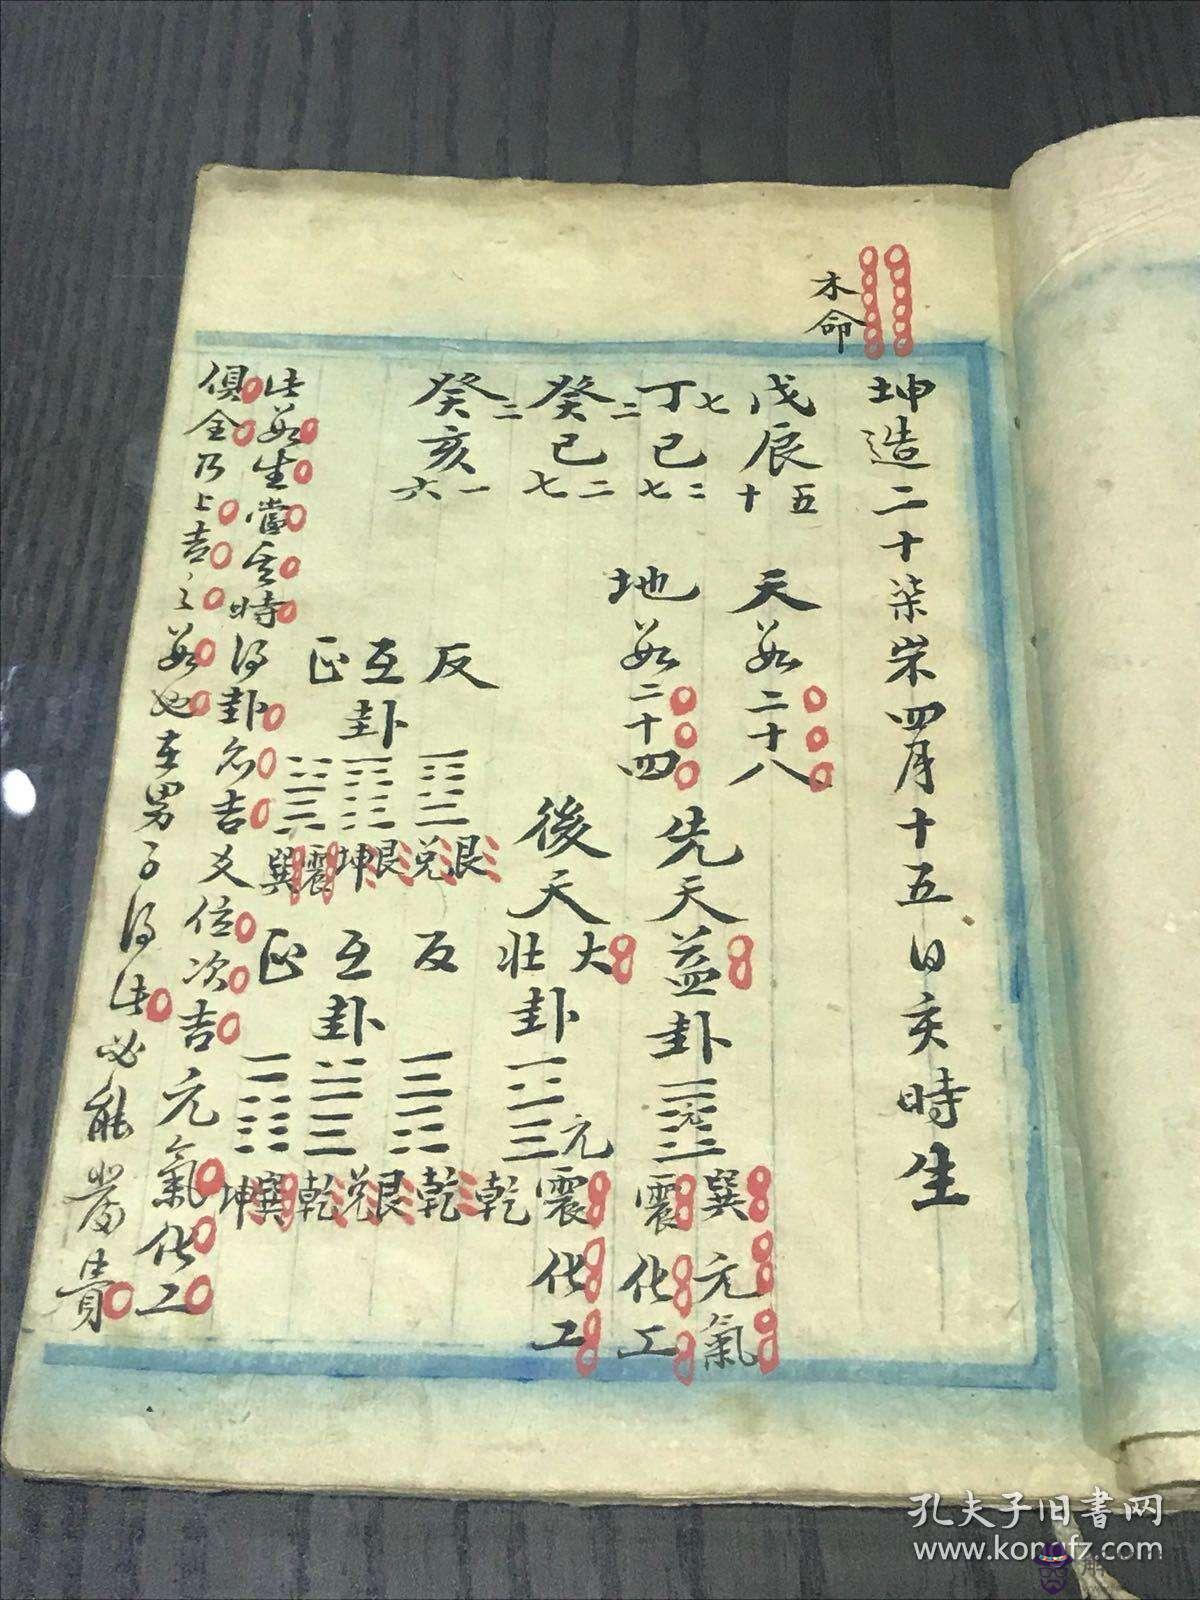 木命
坤造二十柒岁四月十五日亥時生
戊辰 十五
丁巳 七 七二
癸巳 二 七二
癸亥 二 六一
天数二十八
地数二十四
先天益卦 元 巽震 元氣化工
後天大壯卦 元 震乾 化工
反 艮兌
互卦 艮坤
正 震巽
反 乾
互卦 艮兌乾
正 巽坤
此数生當其時得卦名吉爻位次吉元氣化工
俱全乃上吉之数也在男子得此必能當貴
孔夫子旧書网
www.kongfz.com